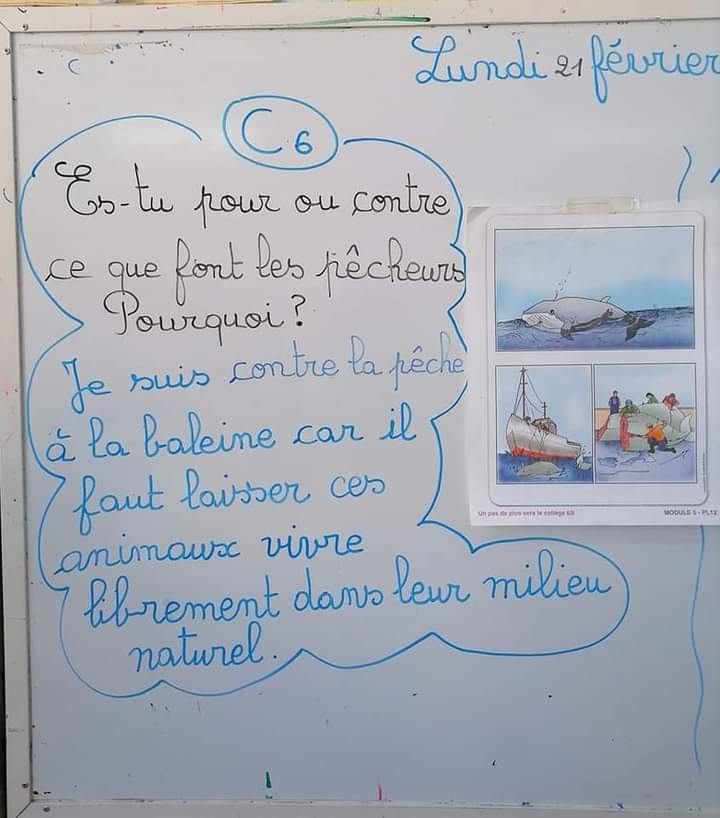 Lundi 21 février
C6
Es-tu pour ou contre
ce que font les pêcheurs
Pourquoi ?
Je suis contre la pêche
à la baleine car il
faut laisser ces
animaux vivre
librement dans leur milieu
naturel.
Un pas de plus vers le collège 6B
MODULE 5 - PL12